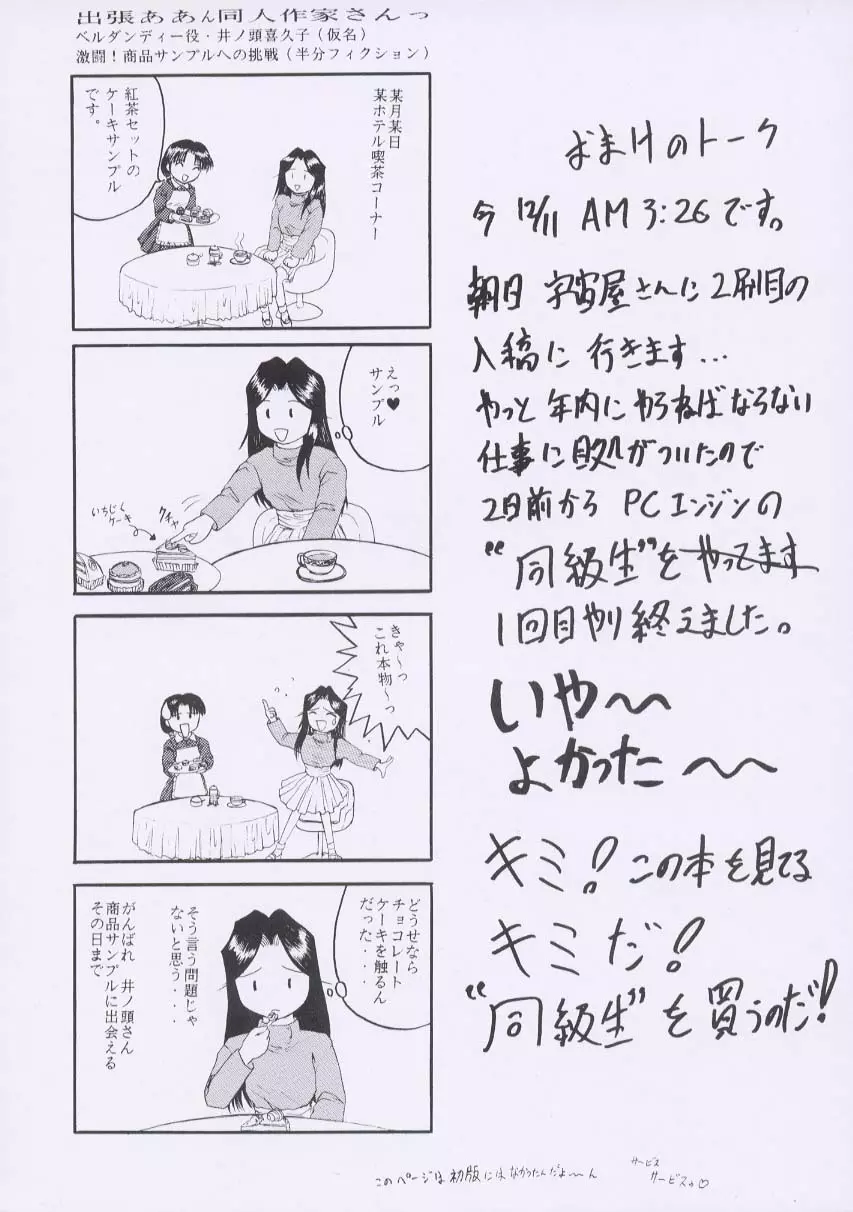 出張ああん同人作家さんっ
ベルダンディー役・井ノ頭喜久子（仮名）
激闘！商品サンプルへの挑戦（半分フィクション）
某月某日
某ホテル喫茶コーナー
紅茶セットの
ケーキサンプル
です。
えっ♥
サンプル
クチャ
いちじく
ケーキ
きゃ〜っ
これ本物〜っ
どうせなら
チョコレート
ケーキを触るん
だった・・
そう言う問題じゃ
ないと思う・・・
がんばれ 井ノ頭さん
商品サンプルに出会える
その日まで
おまけのトーク
今 12/11 AM 3:26です。
朝日 宇宙屋さんに2刷目の
入稿に 行きます...
やっと 年内に やらねばならない
仕事に目処がついたので
2日前から PCエンジンの
“同級生”をやってます
1回目やり終えました。
いや〜〜
よかった〜〜
キミ！この本を見てる
キミだ！
“同級生”を買うのだ！
このページは初版にはなかったんだよ〜ん
サービス
サービスゥ♡